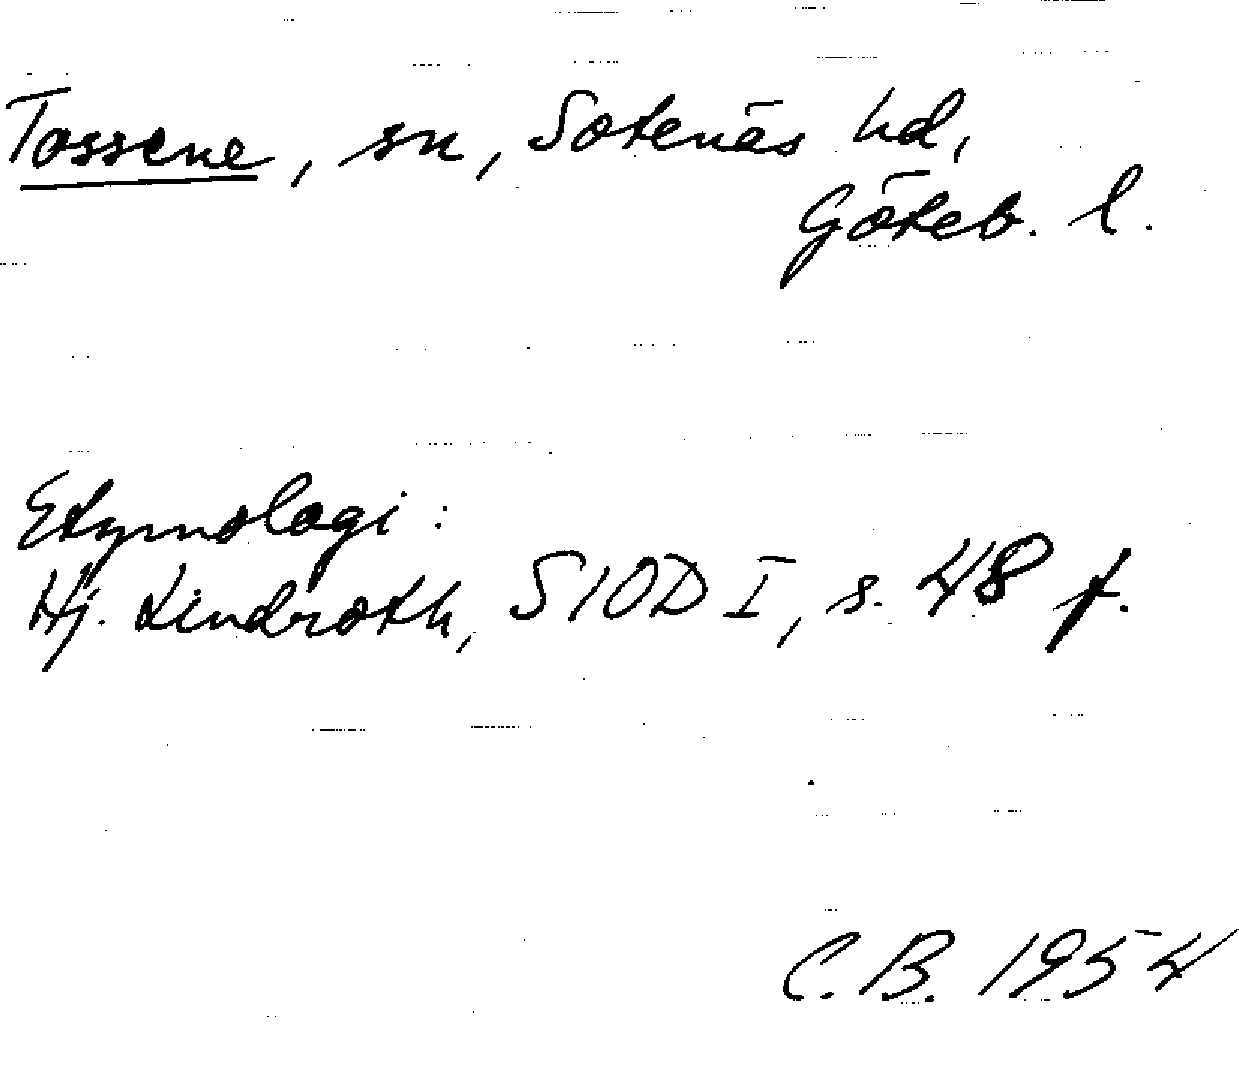 Tossene, sn, Sotenäs hd,
Göteb. l.
Etymologi:
Hj. Lindroth, SIOD I, s. 48 f.
C.B. 1954